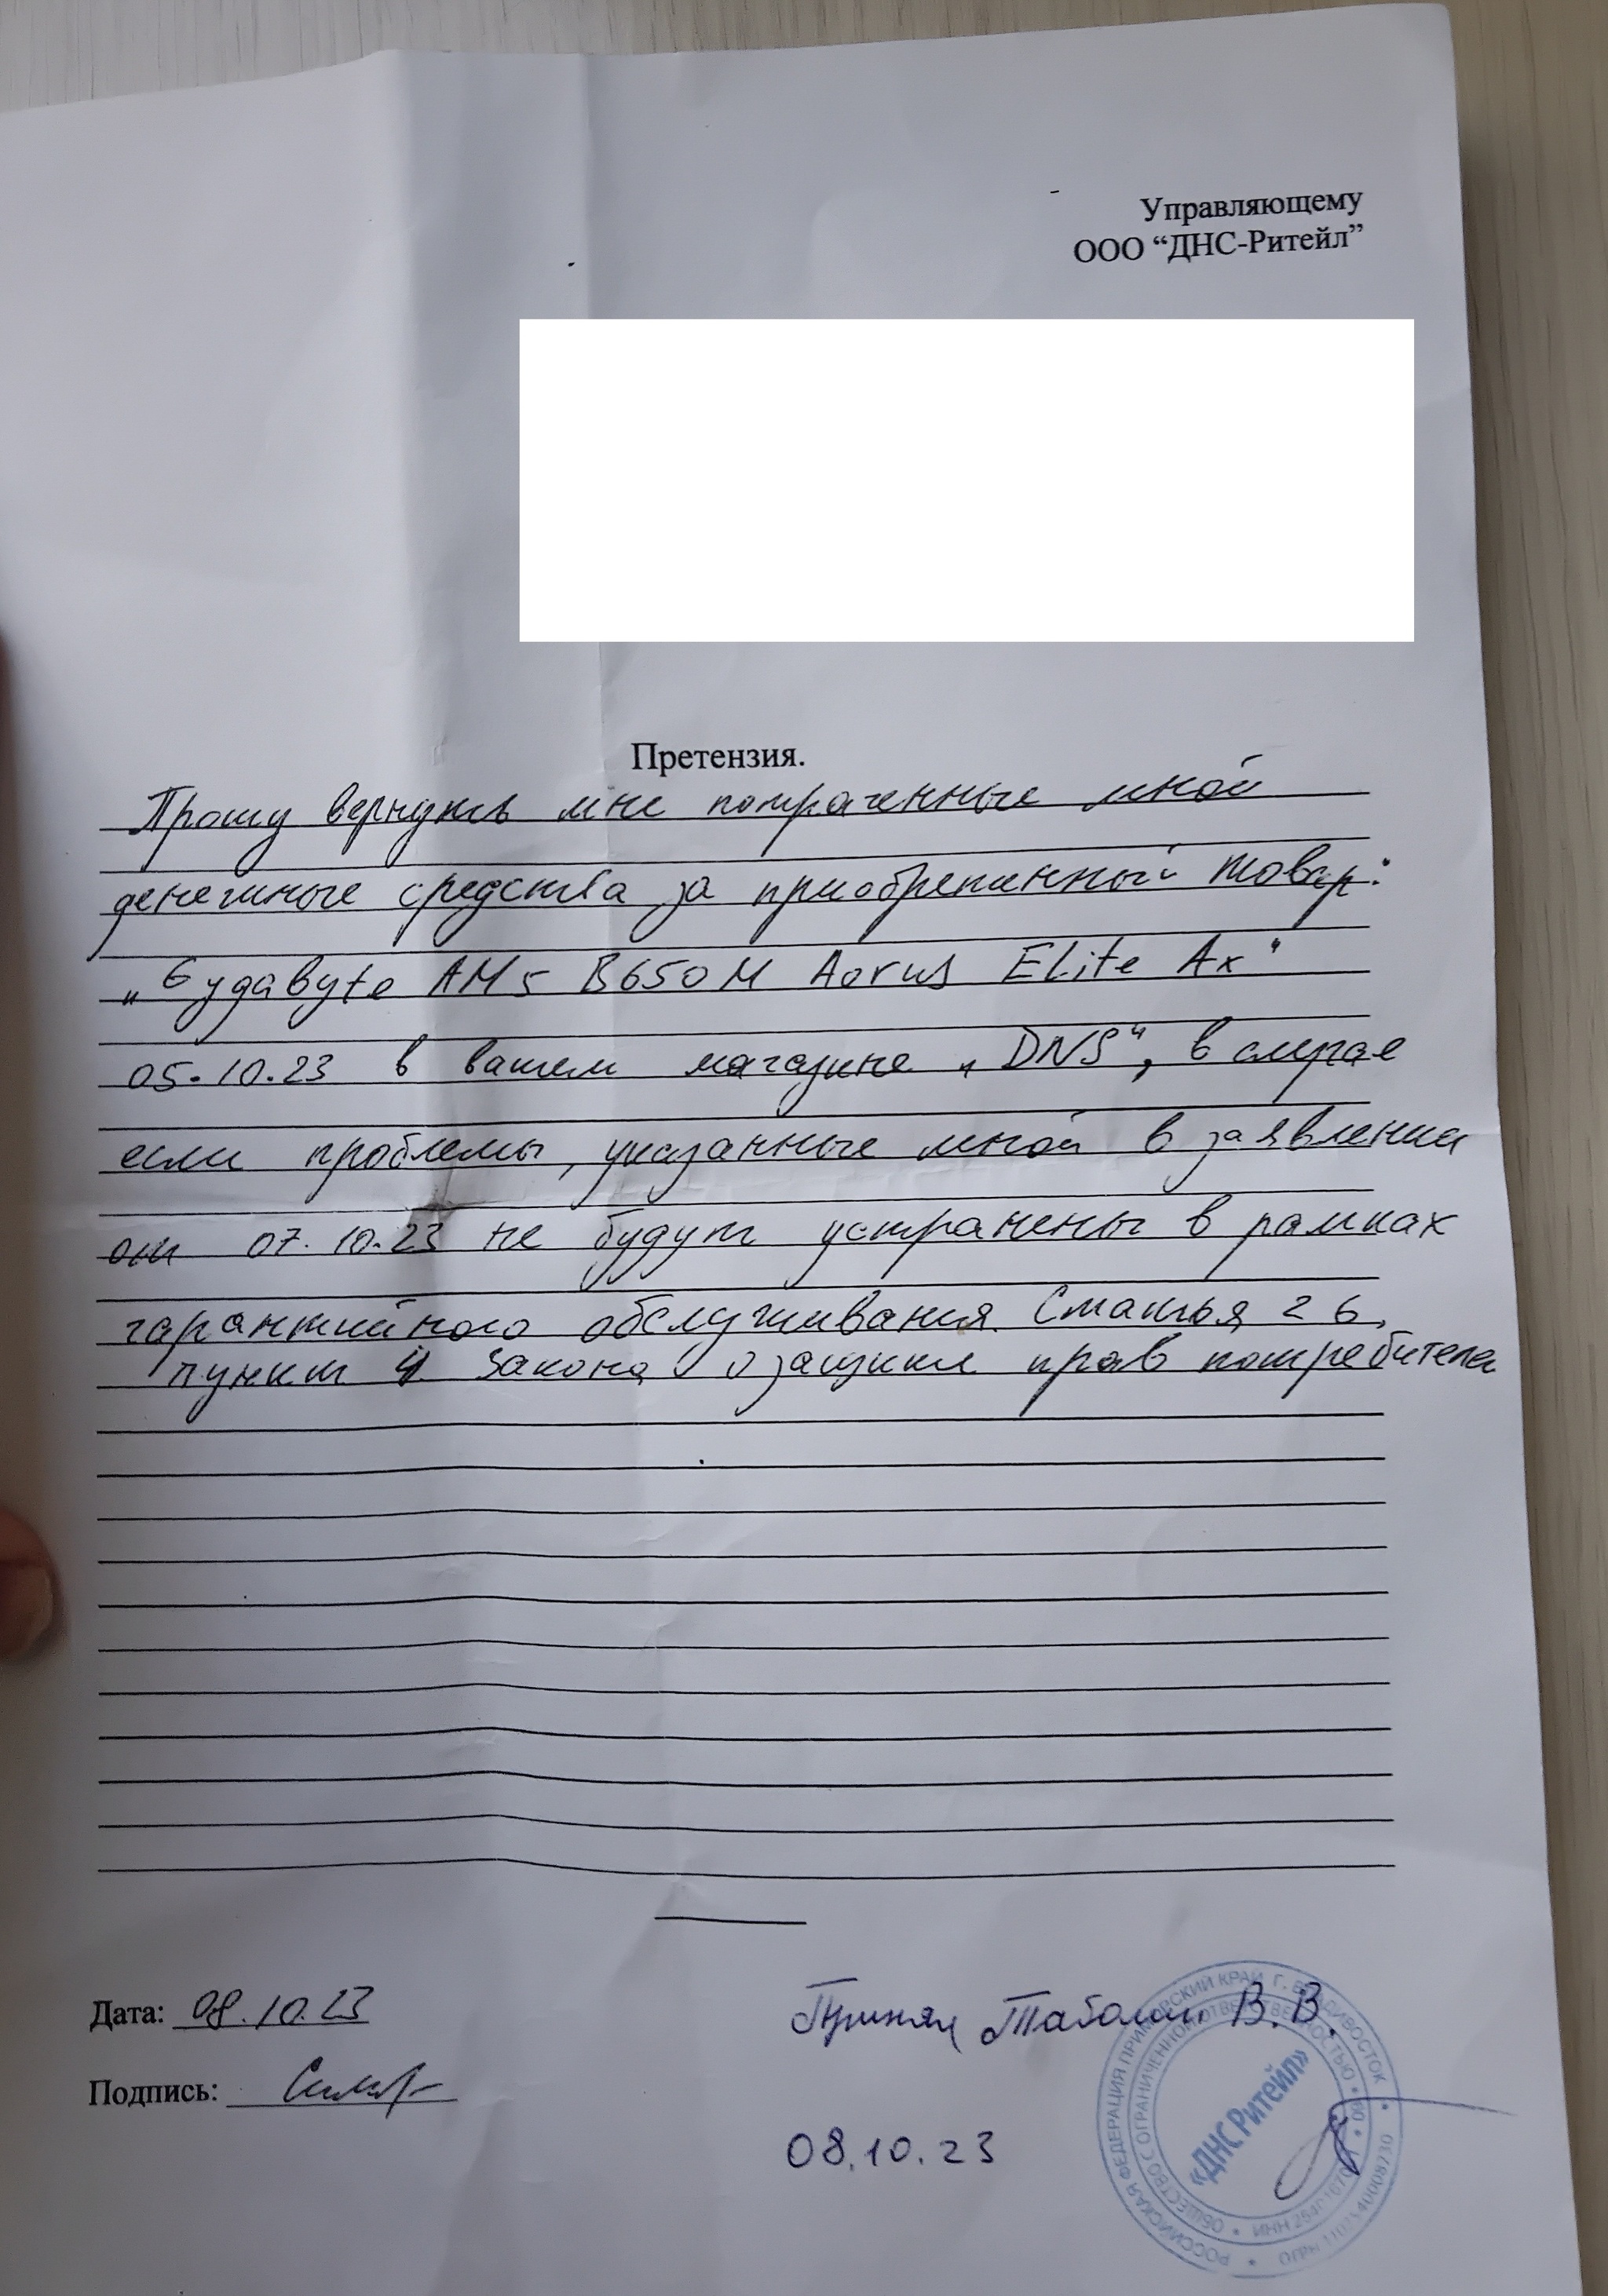 Управляющему
ООО “ДНС-Ритейл”
Претензия.
Прошу вернуть мне потраченные мной
денежные средства за приобретенный товар:
„Gygabyte AM5 B650M Aorus ELite Ax“
05.10.23 в вашем магазине „DNS“, в случае
если проблемы, указанные мной в заявлении
от 07.10.23 не будут устранены в рамках
гарантийного обслуживания. Статья 26,
пункт 4 Закона о защите прав потребителей
Дата: 08.10.23
Подпись:
Принял В.В.
08.10.23
РОССИЙСКАЯ ФЕДЕРАЦИЯ ПРИМОРСКИЙ КРАЙ Г. ВЛАДИВОСТОК
ОБЩЕСТВО С ОГРАНИЧЕННОЙ ОТВЕТСТВЕННОСТЬЮ
«ДНС Ритейл»
ИНН
ОГРН